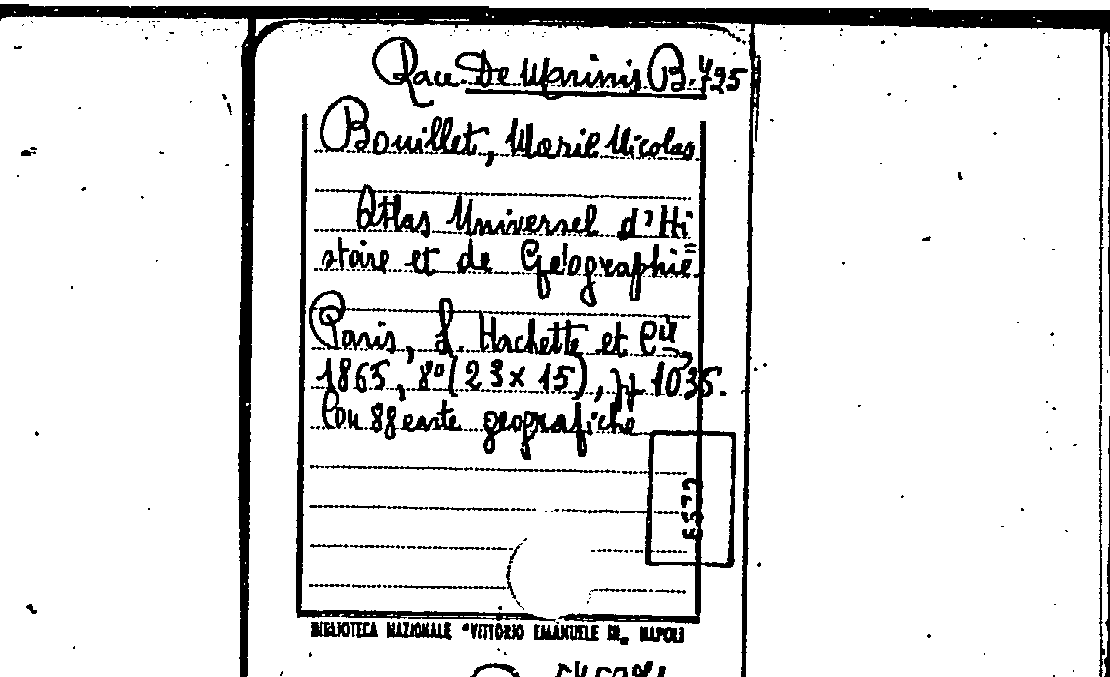 Racc. De Marinis B. 725
Bouillet, Marie Nicolas
Atlas Universel d'Hi
stoire et de Géographie.
Paris, L. Hachette et Cie,
1865, 8º (23 x 15), pp 1035.
Con 88 carte geografiche
BIBLIOTECA NAZIONALE "VITTORIO EMANUELE III" NAPOLI